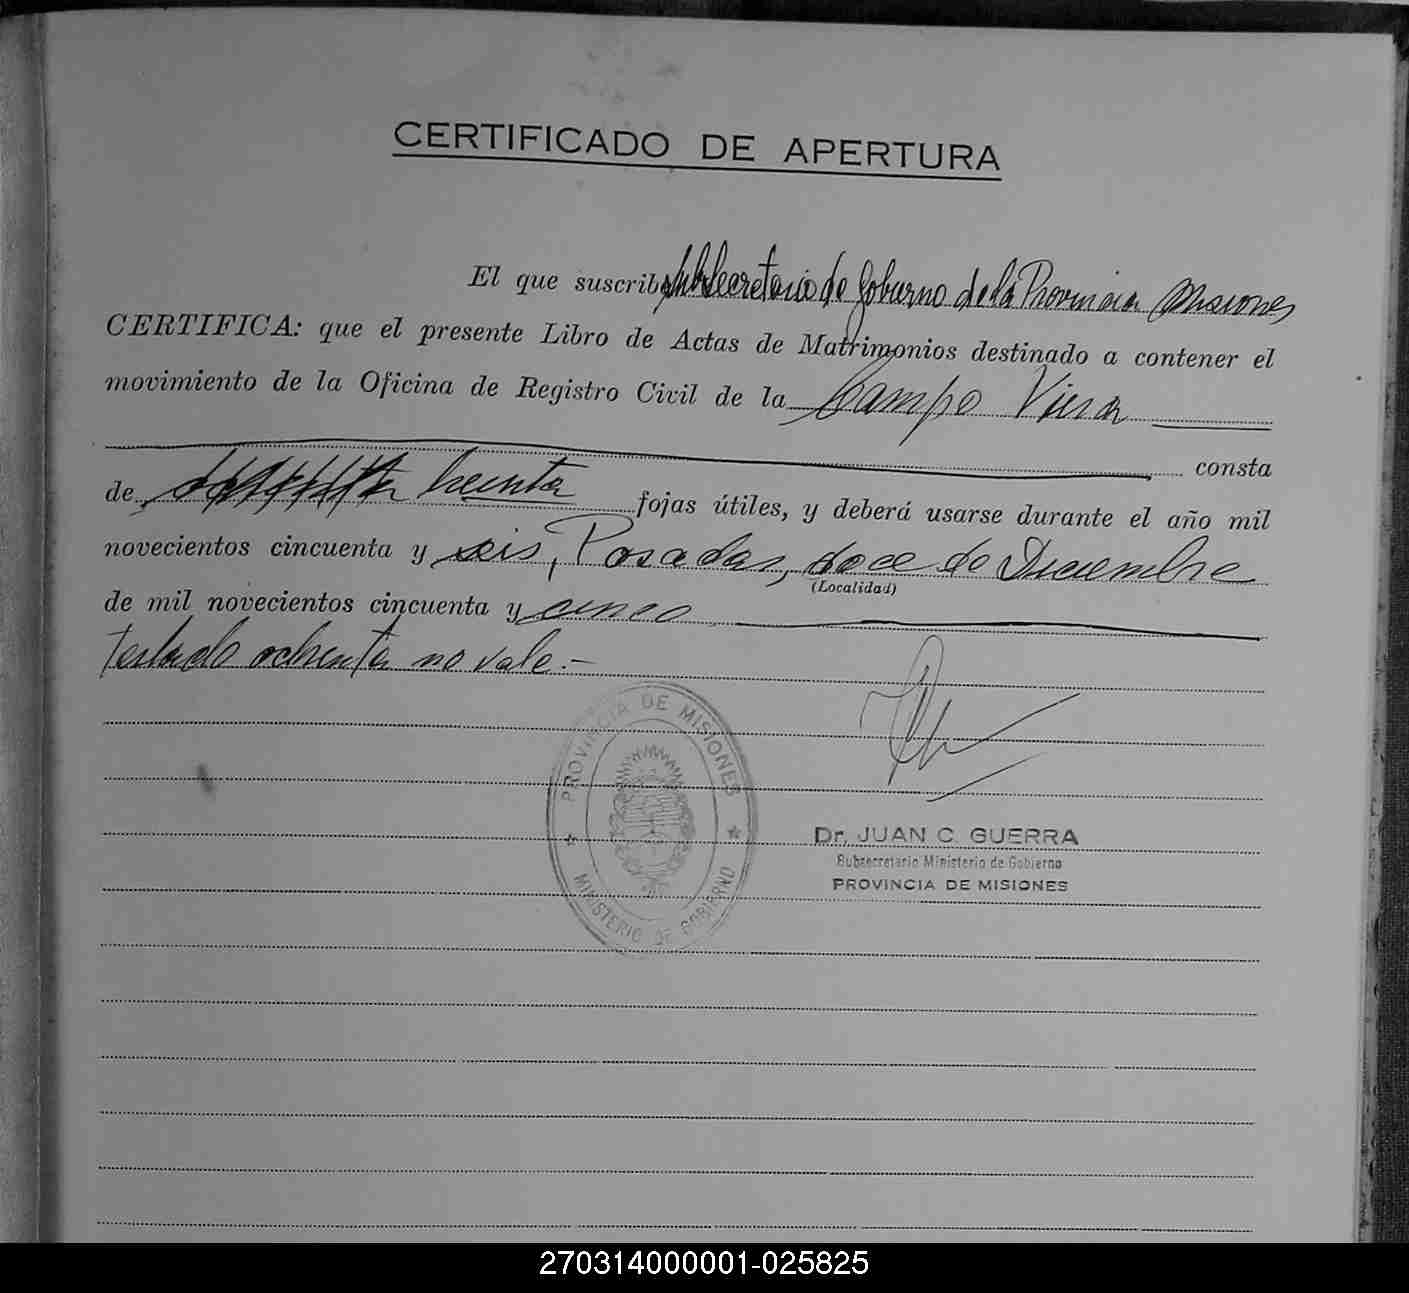 CERTIFICADO DE APERTURA
El que suscribe Subsecretario de Gobierno de la Provincia Misiones
CERTIFICA: que el presente Libro de Actas de Matrimonios destinado a contener el
movimiento de la Oficina de Registro Civil de la Campo Viera
consta
de treinta fojas útiles, y deberá usarse durante el año mil
novecientos cincuenta y seis, Posadas, doce de Diciembre
(Localidad)
de mil novecientos cincuenta y cinco
Testado ochenta no vale.-
PROVINCIA DE MISIONES
MINISTERIO DE GOBIERNO
Dr. JUAN C. GUERRA
Subsecretario Ministerio de Gobierno
PROVINCIA DE MISIONES
270314000001-025825